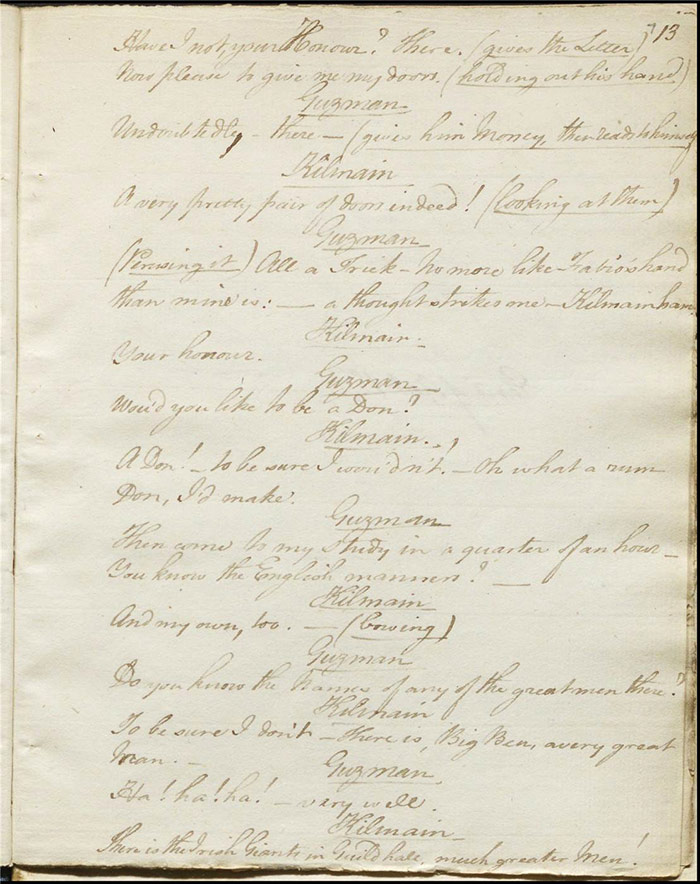 13
Have I not your Honour? There. (gives the Letter)
Now please to give me my doors. (holding out his hand)
Guzman
Undoubtedly, - there - (gives him Money, then reads to himself
Kilmain
A very pretty pair of doors indeed! (looking at them)
Guzman
(Perusing it) All a Trick - no more like - Fabio's hand
than mine is: - a thought strikes me - Kilmainham,
Kilmain.
Your honour.
Guzman
Wou'd you like to be a Don?
Kilmain.
A Don! - to be sure I wou'dn't. - Oh what a rum
Don, I'd make.
Guzman
Then come to my Study in a quarter of an hour -
You know the English manners? -
Kilmain
And my own, too. - (bowing)
Guzman
Do you know the Names of any of the great men there?
Kilmain
To be sure I don't - There is, Big Ben, a very great
Man. -
Guzman
Ha! ha! ha! - very well.
Kilmain
There is the Irish Giants in Guildhall, much greater Men!